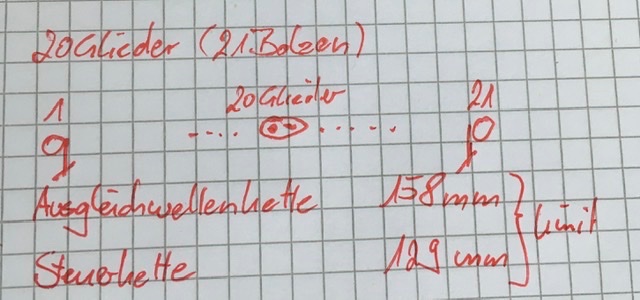 20 Glieder (21 Bolzen)
1 20 Glieder 21
Ausgleichwellenkette 158 mm
Limit
Steuerkette 129 mm